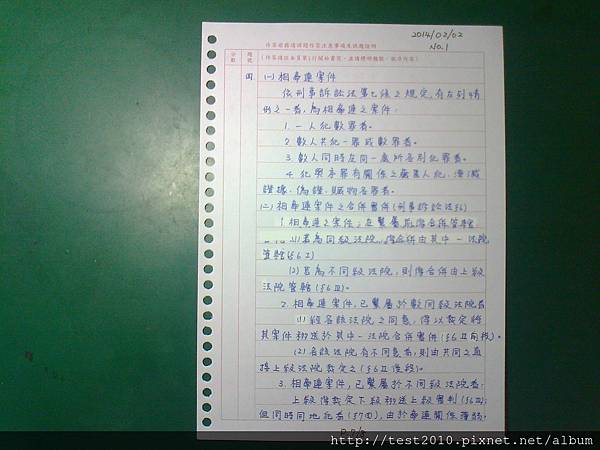 2014/02/02
NO.1
作答前務請詳閱作答注意事項及試題說明
分數
題號
(作答請從本頁第1行開始書寫,並請標明題號,依序作答)
四、(一)相牽連案件
依刑事訴訟法第七條之規定,有左列情
形之一者,為相牽連之案件.
1. 一人犯數罪者。
2. 數人共犯一罪或數罪者。
3. 數人同時在同一處所各別犯罪者。
4. 犯與本罪有關係之藏匿人犯、湮滅
證據、偽證、贓物各罪者。
(二)相牽連案件之合併審件(刑事訴訟法§6)
1. 相牽連之案件,在繫屬前得合併管轄
(1)若為同級法院,得合併由其中一法院
管轄(§6 I)
(2)若為不同級法院,則得合併由上級
法院管轄(§6 III)。
2. 相牽連案件,已繫屬於數同級法院者
(1)經各該法院之同意,得以裁定將
其案件移送於其中一法院合併審件(§6 II前段)。
(2)各該法院有不同意者,則由共同之直
接上級法院裁定之(§6 II後段)。
3. 相牽連案件,已繫屬於不同級法院者.
上級得裁定下級移送上級審判(§6 III);
但同時同地犯者(§7③),由於牽連關係薄弱,
http://test2010.pixnet.net/album